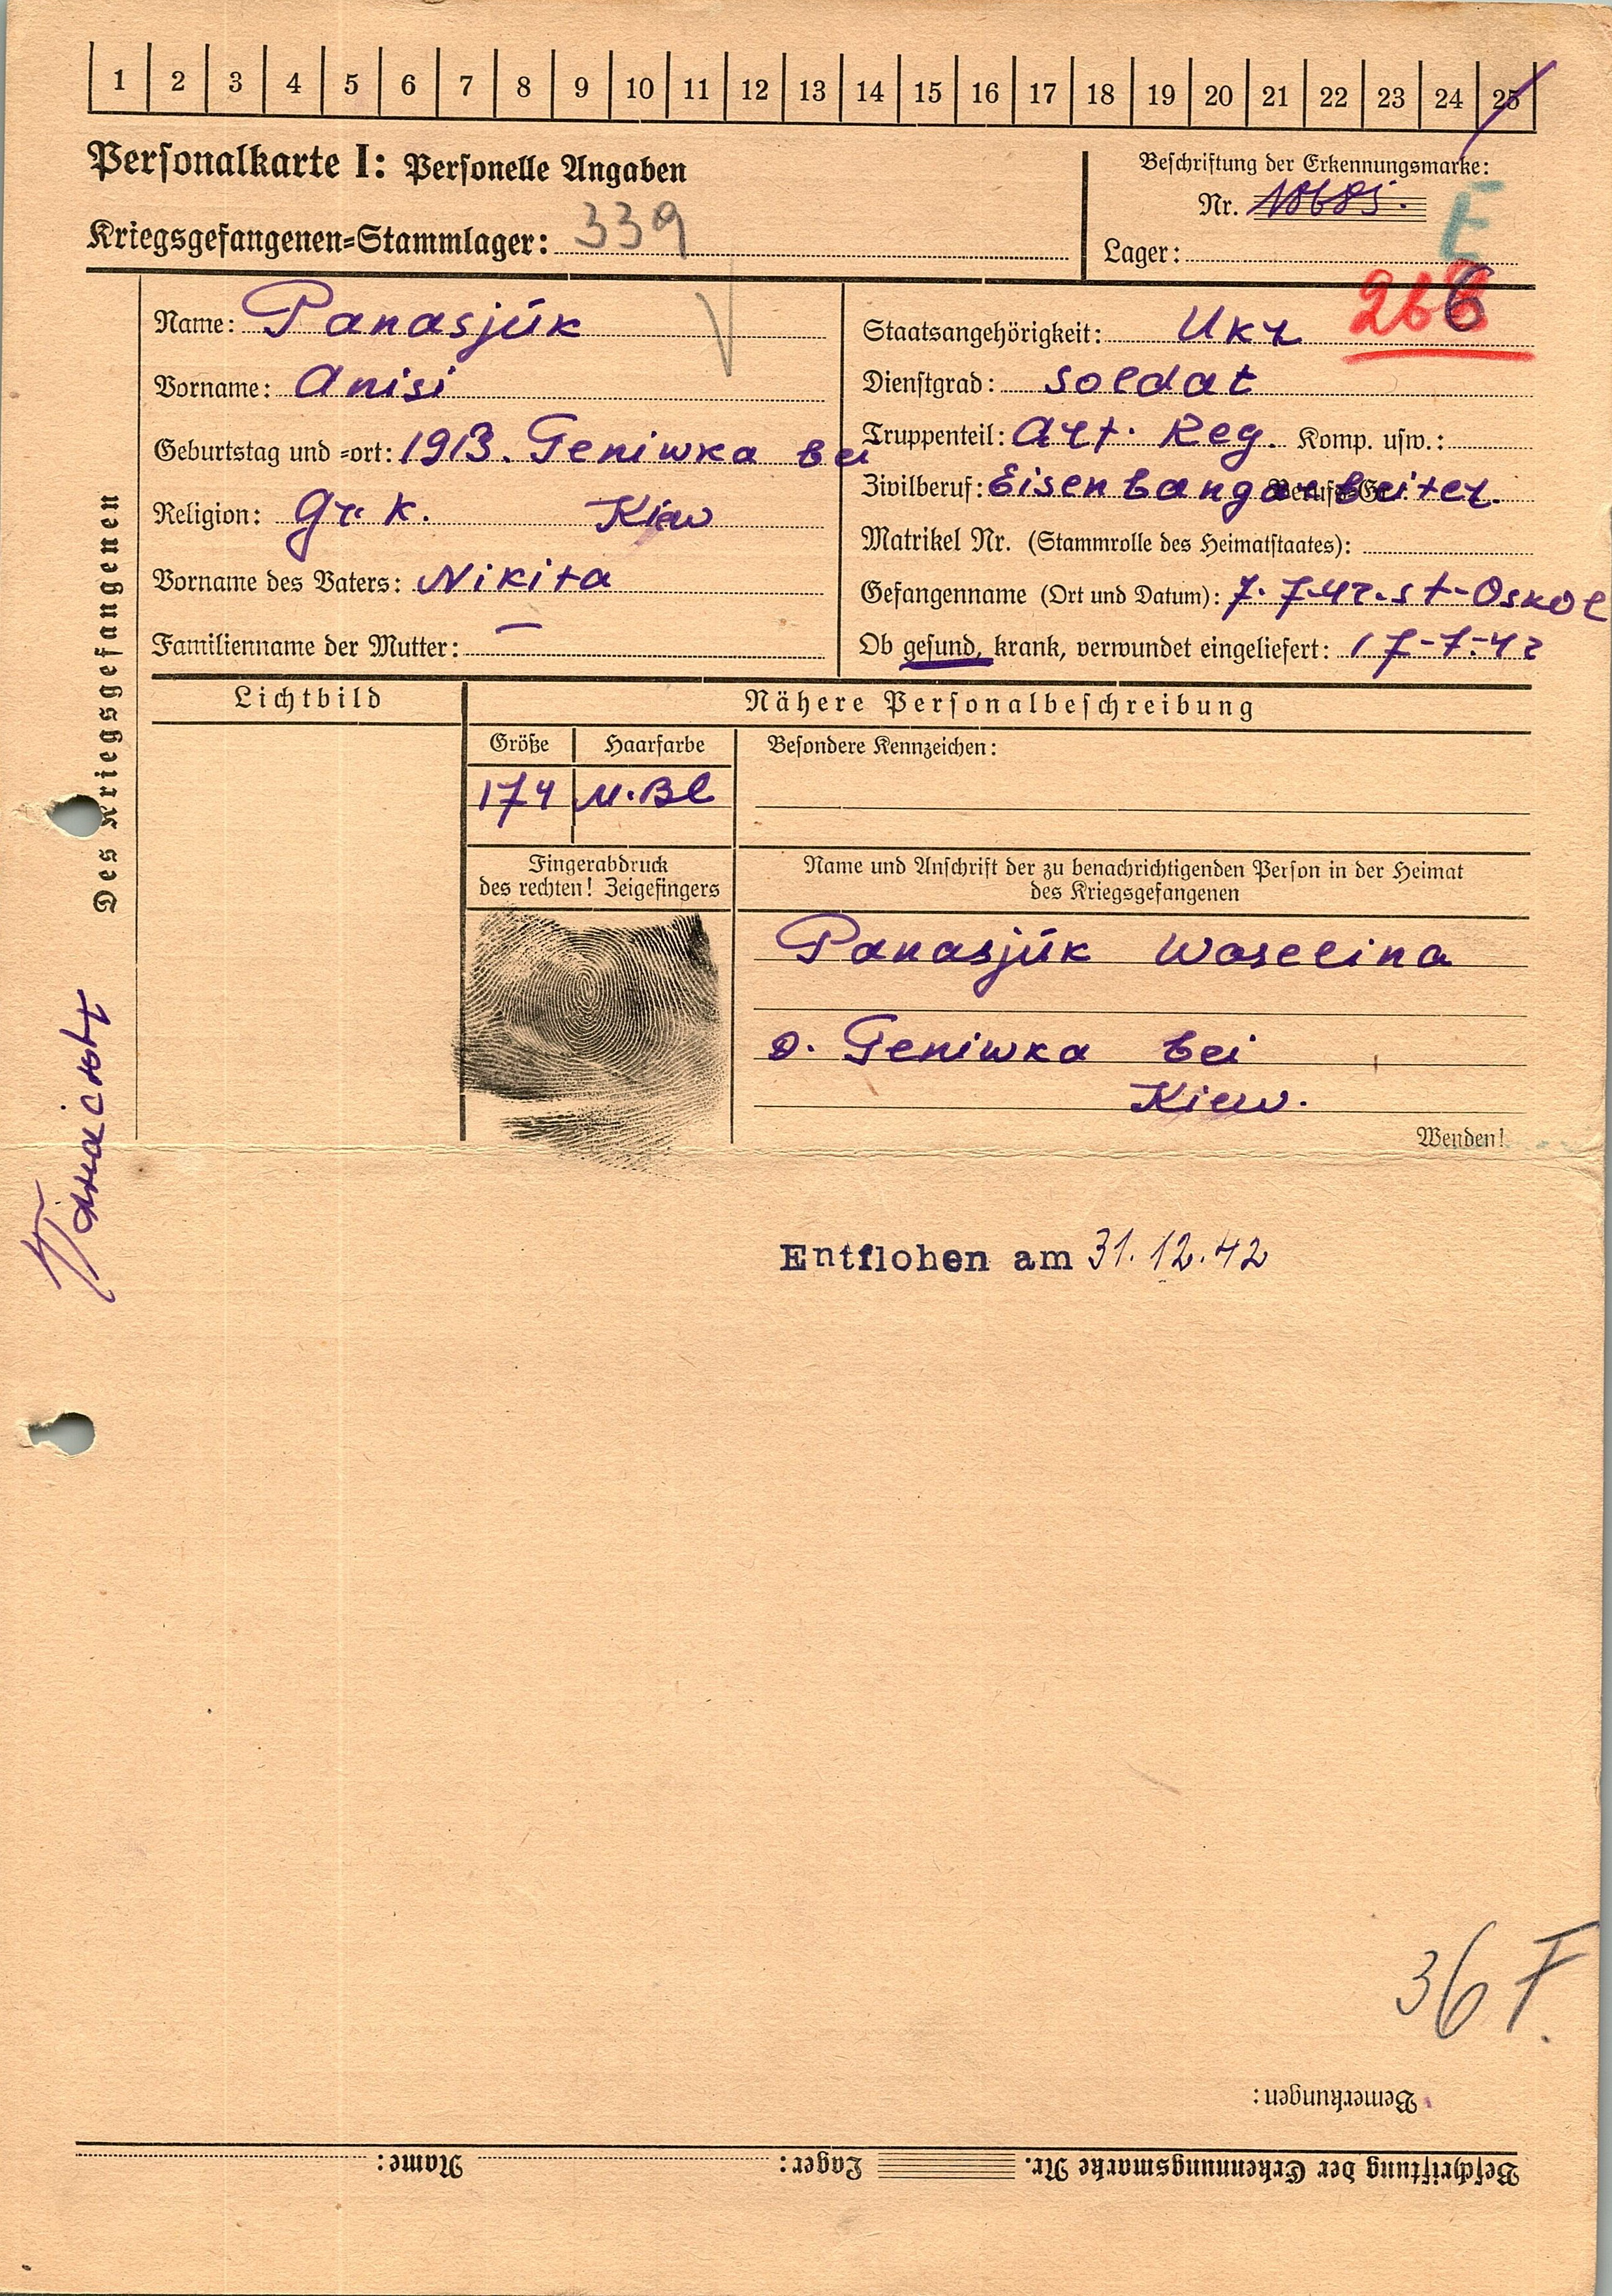 1 2 3 4 5 6 7 8 9 10 11 12 13 14 15 16 17 18 19 20 21 22 23 24 25
Personalkarte I: Personelle Angaben
Beschriftung der Erkennungsmarke:
Nr. 10685.
E
Kriegsgefangenen-Stammlager: 339
Lager:
266
Des Kriegsgefangenen
Name: Panasjúk
Vorname: Anisi
Geburtstag und -ort: 1913. Geniwka bei
Religion: Gr. K. Kiew
Vorname des Vaters: Nikita
Familienname der Mutter: —
Staatsangehörigkeit: Ukr
Dienstgrad: Soldat
Truppenteil: Art. Reg. Komp. usw.:
Zivilberuf: Eisenbangarbeiter.
Matrikel Nr. (Stammrolle des Heimatstaates):
Gefangenname (Ort und Datum): 7.7-42. St-Oskol
Ob gesund, krank, verwundet eingeliefert: 17-7-42
Lichtbild
Nähere Personalbeschreibung
Größe
Haarfarbe
Besondere Kennzeichen:
174
M.Bl
Fingerabdruck
des rechten! Zeigefingers
Name und Anschrift der zu benachrichtigenden Person in der Heimat
des Kriegsgefangenen
Panasjúk Waselina
D. Geniwka bei
Kiew.
Wenden!
Entflohen am 31.12.42
36 F.
Bemerkungen:
Beschriftung der Erkennungsmarke Nr. Lager: Name: